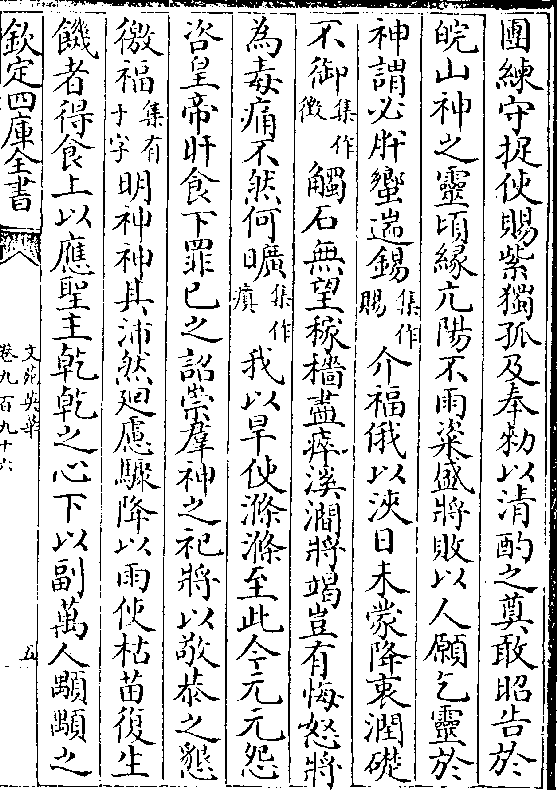 團練守捉使賜紫獨孤及奉勅以清酌之奠敢昭告於
皖山神之靈頃緣亢陽不雨粢盛將敗以人願乞靈於
神謂必肸蠁遄錫集作賜介福俄以浹日未蒙降衷潤礎
不御集作徴觸石無望稼穡盡瘁溪澗將竭豈有悔怒將
為毒痛不然何曠集作瘨我以旱使滌滌至此今元元怨
咨皇帝旰食下罪已之詔崇羣神之祀將以敬恭之懇
徼福集有于字明神神其沛然廻慮驟降以雨使枯苗復生
饑者得食上以應聖主乾乾之心下以副萬人顒顒之
欽定四庫全書
文苑英華
卷九百九十六
五